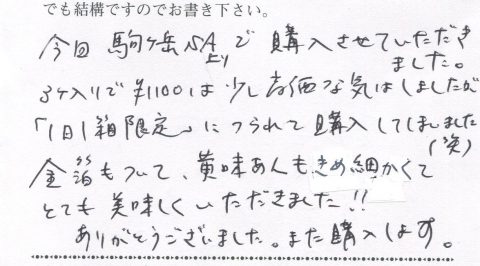 でも結構ですのでお書き下さい。
今回 駒ヶ岳SA上りで 購入させていただき
ました。
3ヶ入りで ¥1100は 少し高価な気はしましたが
「1日1箱限定」につられて購入してしまいました
(笑)
金箔もついて、黄味あんもきめ細かくて
とても美味しくいただきました!!
ありがとうございました。また購入します。